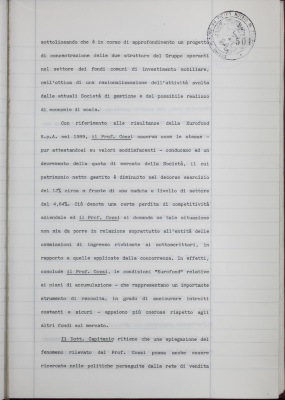 sottolineando che è in corso di approfondimento un progetto
di concentrazione delle due strutture del Gruppo operanti
nel settore dei fondi comuni di investimento mobiliare,
nell'ottica di una razionalizzazione dell'attività svolta
dalle attuali Società di gestione e del possibile realizzo
di economie di scala.
Con riferimento alle risultanze della Eurofond
S.p.A. nel 1989, il Prof. Cossi osserva come le stesse -
pur attestandosi su valori soddisfacenti - conducano ad un
decremento della quota di mercato della Società, il cui
patrimonio netto gestito è diminuito nel decorso esercizio
del 12% circa a fronte di una caduta a livello di settore
del 4,64%. Ciò denota una certa perdita di competitività
aziendale ed il Prof. Cossi si domanda se tale situazione
non sia da porre in relazione soprattutto all'entità delle
commissioni di ingresso richieste ai sottoscrittori, in
rapporto a quelle applicate dalla concorrenza. In effetti,
conclude il Prof. Cossi, le condizioni "Eurofond" relative
ai piani di accumulazione - che rappresentano un importante
strumento di raccolta, in grado di assicurare introiti
costanti e sicuri - appaiono più onerose rispetto agli
altri fondi sul mercato.
Il Dott. Capitanio ritiene che una spiegazione del
fenomeno rilevato dal Prof. Cossi possa anche essere
ricercata nelle politiche perseguite dalle rete di vendita